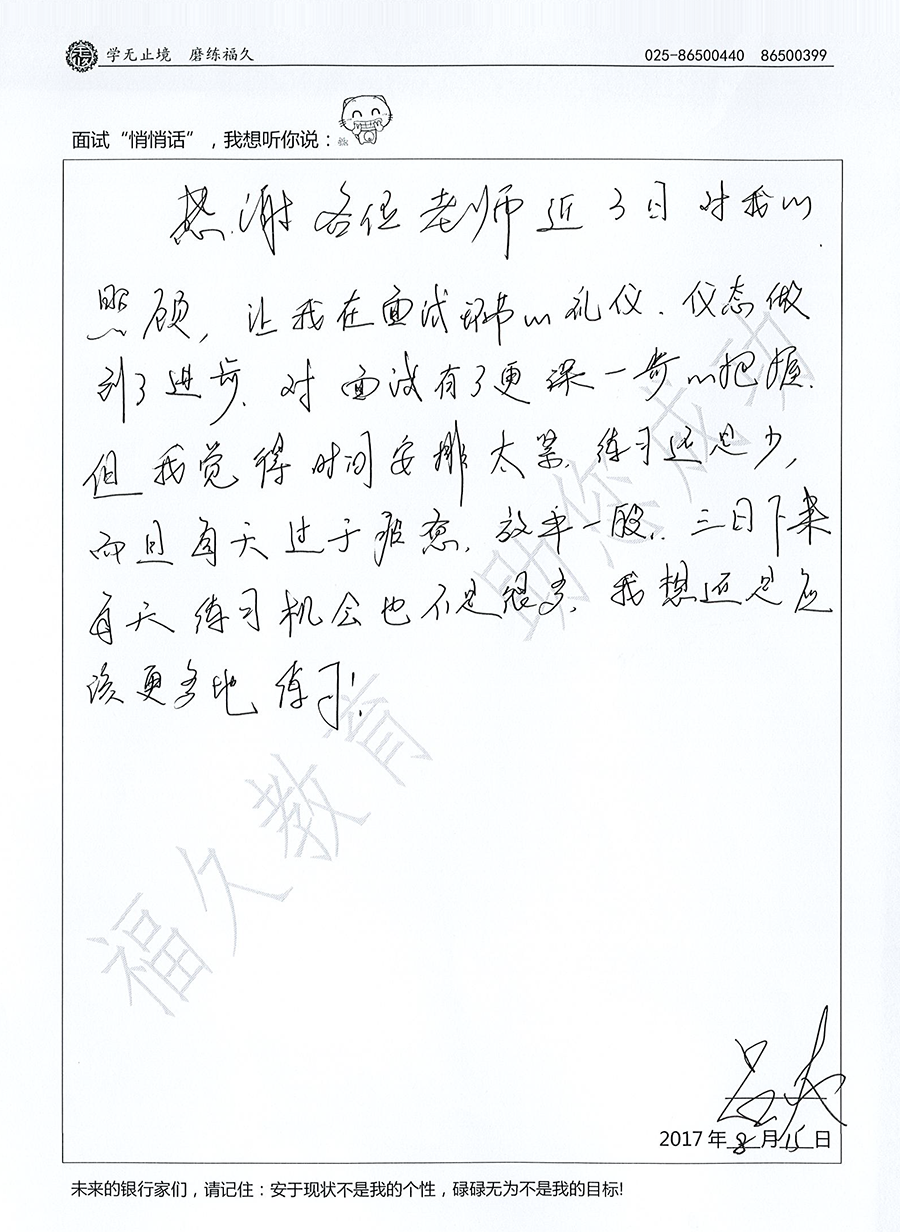 学无止境 磨练福久
025-86500440 86500399
面试“悄悄话”，我想听你说：
感谢各位老师近3日对我的
照顾，让我在面试环节的礼仪、仪态做
到了进步，对面试有了更深一步的把握.
但我觉得时间安排太紧，练习还是少，
而且每天过于疲惫，效率一般，三日下来
每天练习机会也不是很多，我想还是应
该更多地练习！
福久教育 助您成功
2017年8月15日
未来的银行家们，请记住：安于现状不是我的个性，碌碌无为不是我的目标!